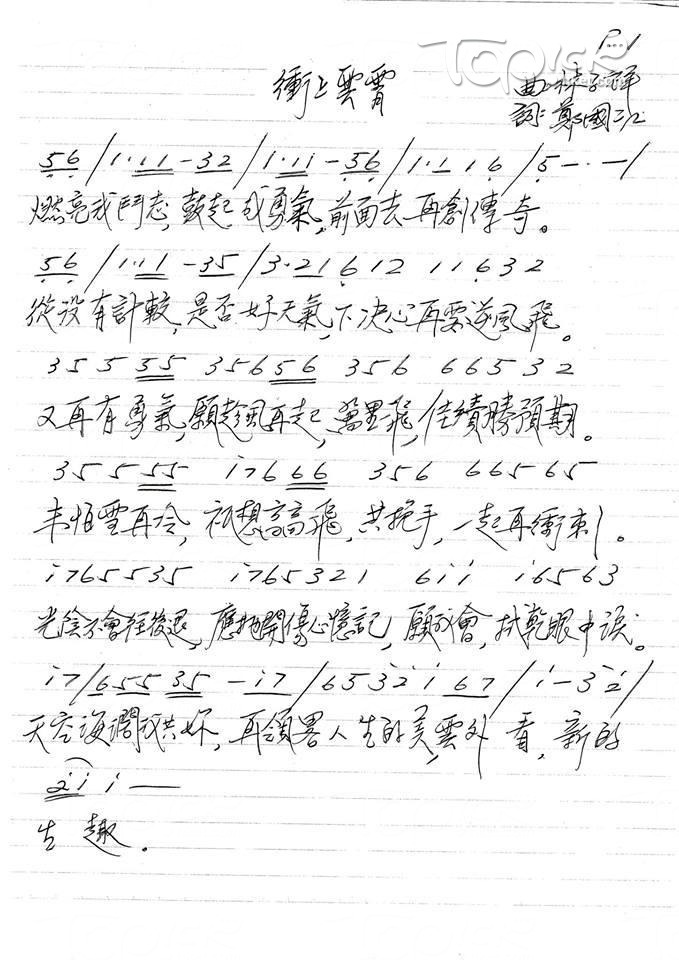 P.1
TOPick
衝上雲霄
曲:林子祥
詞:鄭國江
56/1·11-32/1·1i-56/1·116/5-·-/
燃亮我鬥志,鼓起我勇氣,前面去再創傳奇。
56/1·11-35/3·21612 11632
從沒有計較,是否好天氣,下決心再要逆風飛。
355 55 356 56 356 66532
又再有勇氣,願趁風再起,萬里飛,佳績勝預期。
355 55 i76 66 356 66565
未怕雪再冷,衹想高高飛,共挽手,一起再衝刺。
i765535 i765321 6ii i6563
光陰不會往後退,應拋開傷心憶記,願我會,拭乾眼中淚。
i7/655 35-i7/653i2i 67/i-32/
天空海濶我共妳,再領畧人生的美,雲外看,新的
2i i —
生趣。